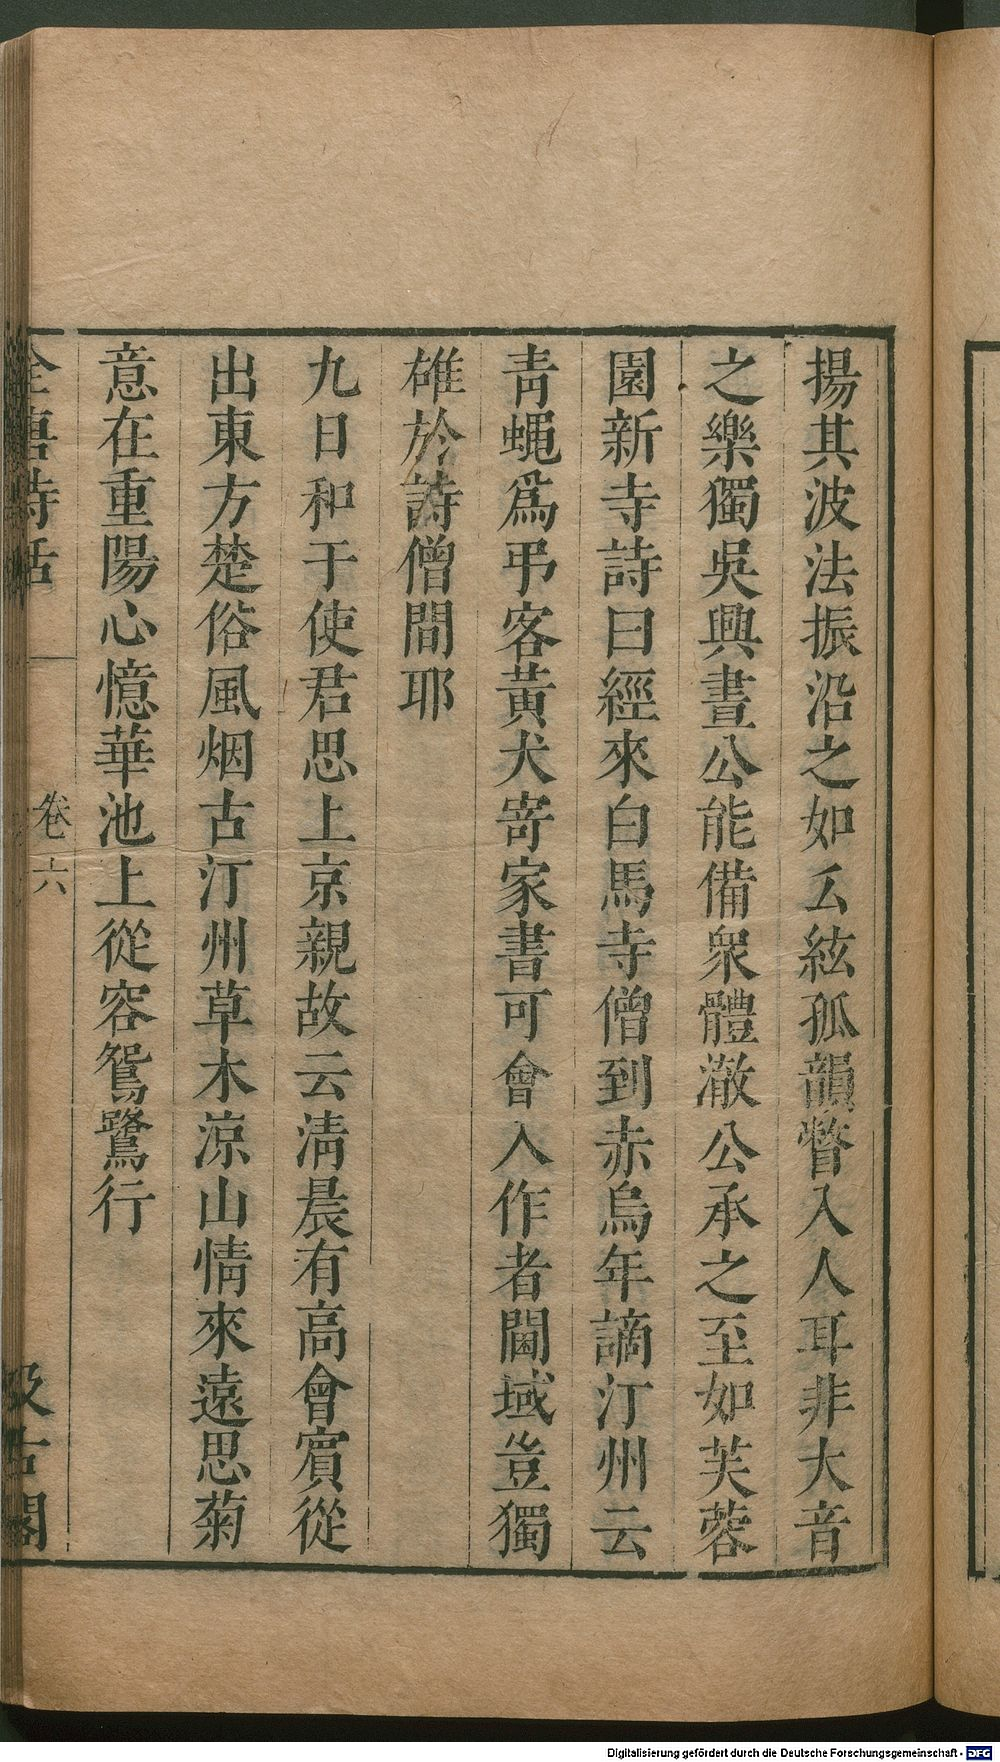 揚其波法振沿之如么絃孤韻瞥入人耳非大音
之樂獨吳興晝公能備衆體澈公承之至如芙蓉
園新寺詩曰經來白馬寺僧到赤烏年謫汀州云
青蠅爲弔客黃犬寄家書可會入作者閫域豈獨
雄於詩僧間耶
九日和于使君思上京親故云淸晨有高會賓從
出東方楚俗風烟古汀州草木涼山情來遠思菊
意在重陽心憶華池上從容鴛鷺行
全唐詩話 卷六 汲古閣
Digitalisierung gefördert durch die Deutsche Forschungsgemeinschaft - DFG